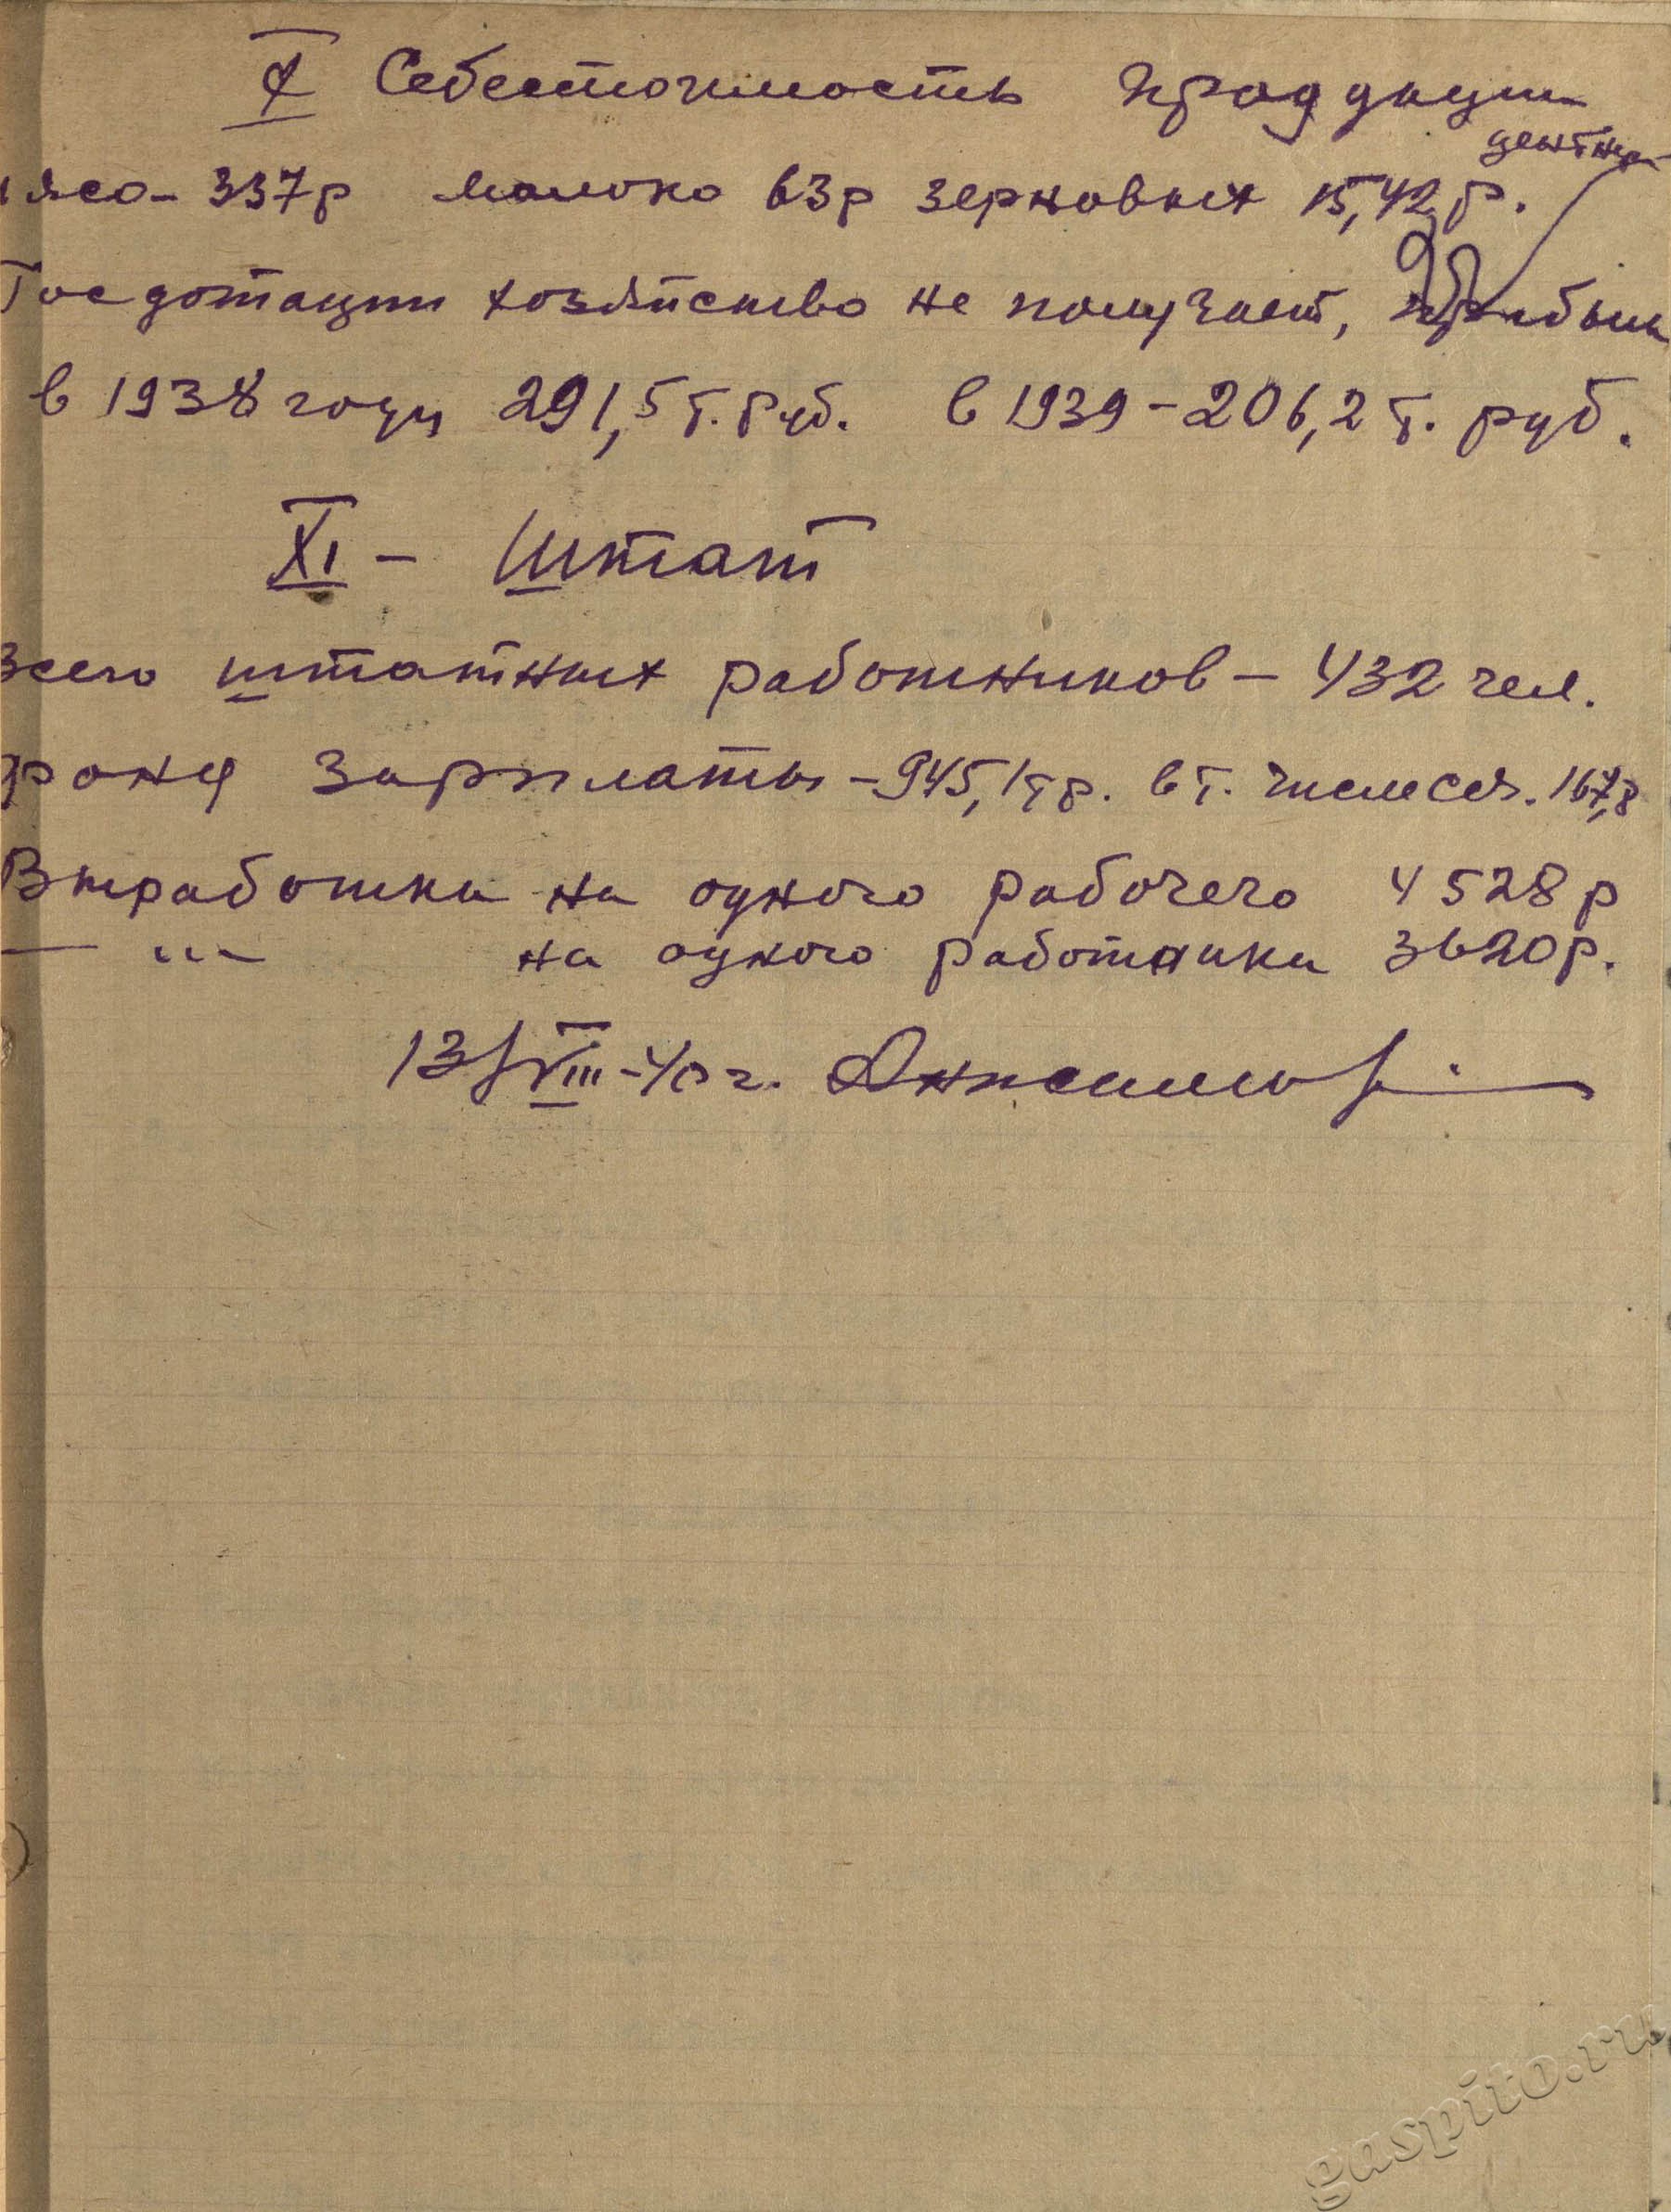 X Себестоимость продукции
мясо - 337р молоко 63р зерновых 15,42 р.
центнер
Госдотации хозяйство не получает, прибыль
в 1938 году 291,5 т. руб. в 1939 - 206,2 т. руб.
XI - Штат
Всего штатных работников - 432 чел.
фонд зарплаты - 945,1 т р. в т. числе сез. 167,8
Выработка на одного рабочего 4528 р
— "— на одного работника 3620 р.
13/VIII-40 г.
gaspito.ru